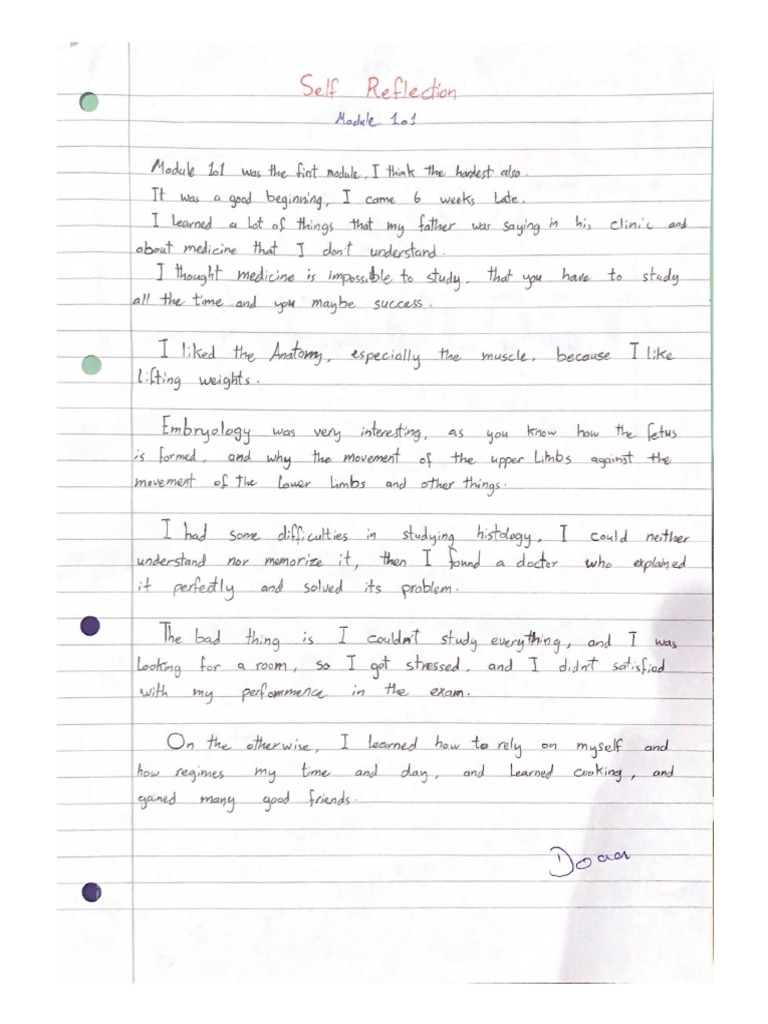 Self Reflection
Module 101
Module 101 was the first module, I think the hardest also.
It was a good beginning, I came 6 weeks late.
I learned a lot of things that my father was saying in his clinic and
about medicine that I don't understand.
I thought medicine is impossible to study, that you have to study
all the time and you maybe success.
I liked the Anatomy, especially the muscle, because I like
lifting weights.
Embryology was very interesting, as you know how the fetus
is formed, and why the movement of the upper limbs against the
movement of the lower limbs and other things.
I had some difficulties in studying histology, I could neither
understand nor memorize it, then I found a doctor who explained
it perfectly and solved its problem.
The bad thing is I couldn't study everything, and I was
looking for a room, so I got stressed, and I didn't satisfied
with my perfommence in the exam.
On the otherwise, I learned how to rely on myself and
how regimes my time and day, and learned cooking, and
gained many good friends.
Doaa